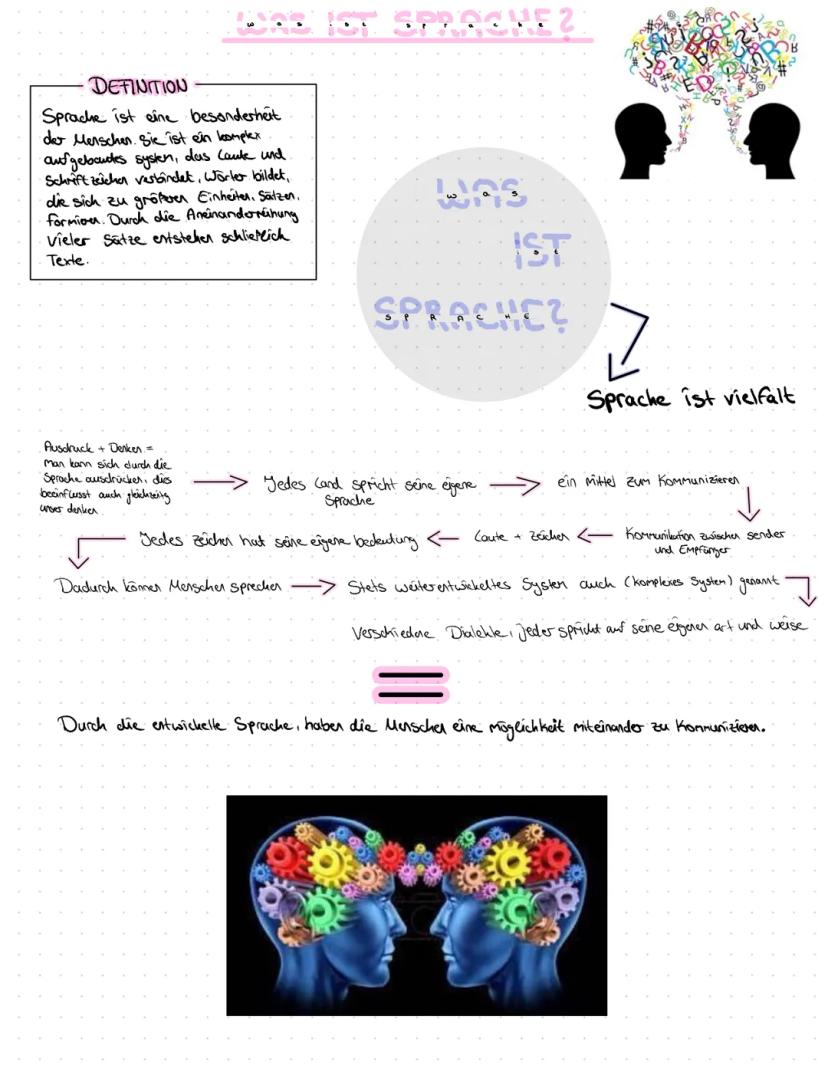 WAS IST SPRACHE?
was ist sprache
DEFINITION
Sprache ist eine besonderheit
der Menschen. Sie ist ein komplex
aufgebautes system, das Laute und
Schriftzeichen verbindet, Wörter bildet,
die sich zu größeren Einheiten, Sätzen,
formieren. Durch die Aneinanderreihung
vieler Sätze entstehen schließlich
Texte.
WAS
was
IST
ist
SPRACHE?
SPRACHE
Sprache ist vielfalt
Ausdruck + Denken =
Man kann sich durch die
Sprache ausdrücken, dies
beeinflusst auch gleichzeitig
unser denken
Jedes Land spricht seine eigene
Sprache
ein Mittel zum Kommunizieren
Kommunikation zwischen sender
und Empfänger
Laute + Zeichen
Jedes Zeichen hat seine eigene bedeutung
Dadurch können Menschen sprechen
Stets weiterentwickeltes System auch (komplexes System) genannt
Verschiedene Dialekte, jeder spricht auf seine eigenen art und weise
Durch die entwickelte Sprache, haben die Menschen eine möglichkeit miteinander zu Kommunizieren.